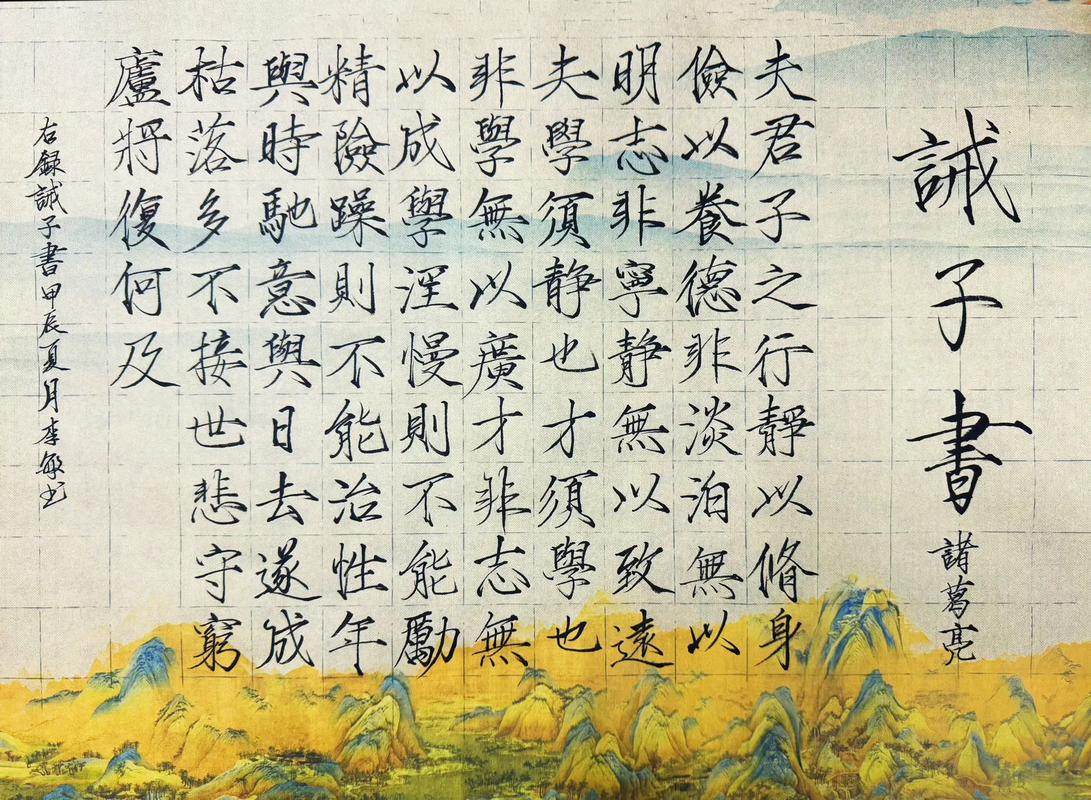 誡子書
諸葛亮
夫君子之行靜以脩身
儉以養德非淡泊無以
明志非寧静無以致遠
夫學須静也才須學也
非學無以廣才非志無
以成學淫慢則不能勵
精險躁則不能治性年
與時馳意與日去遂成
枯落多不接世悲守窮
廬將復何及
右録誡子書甲辰夏月李敏书